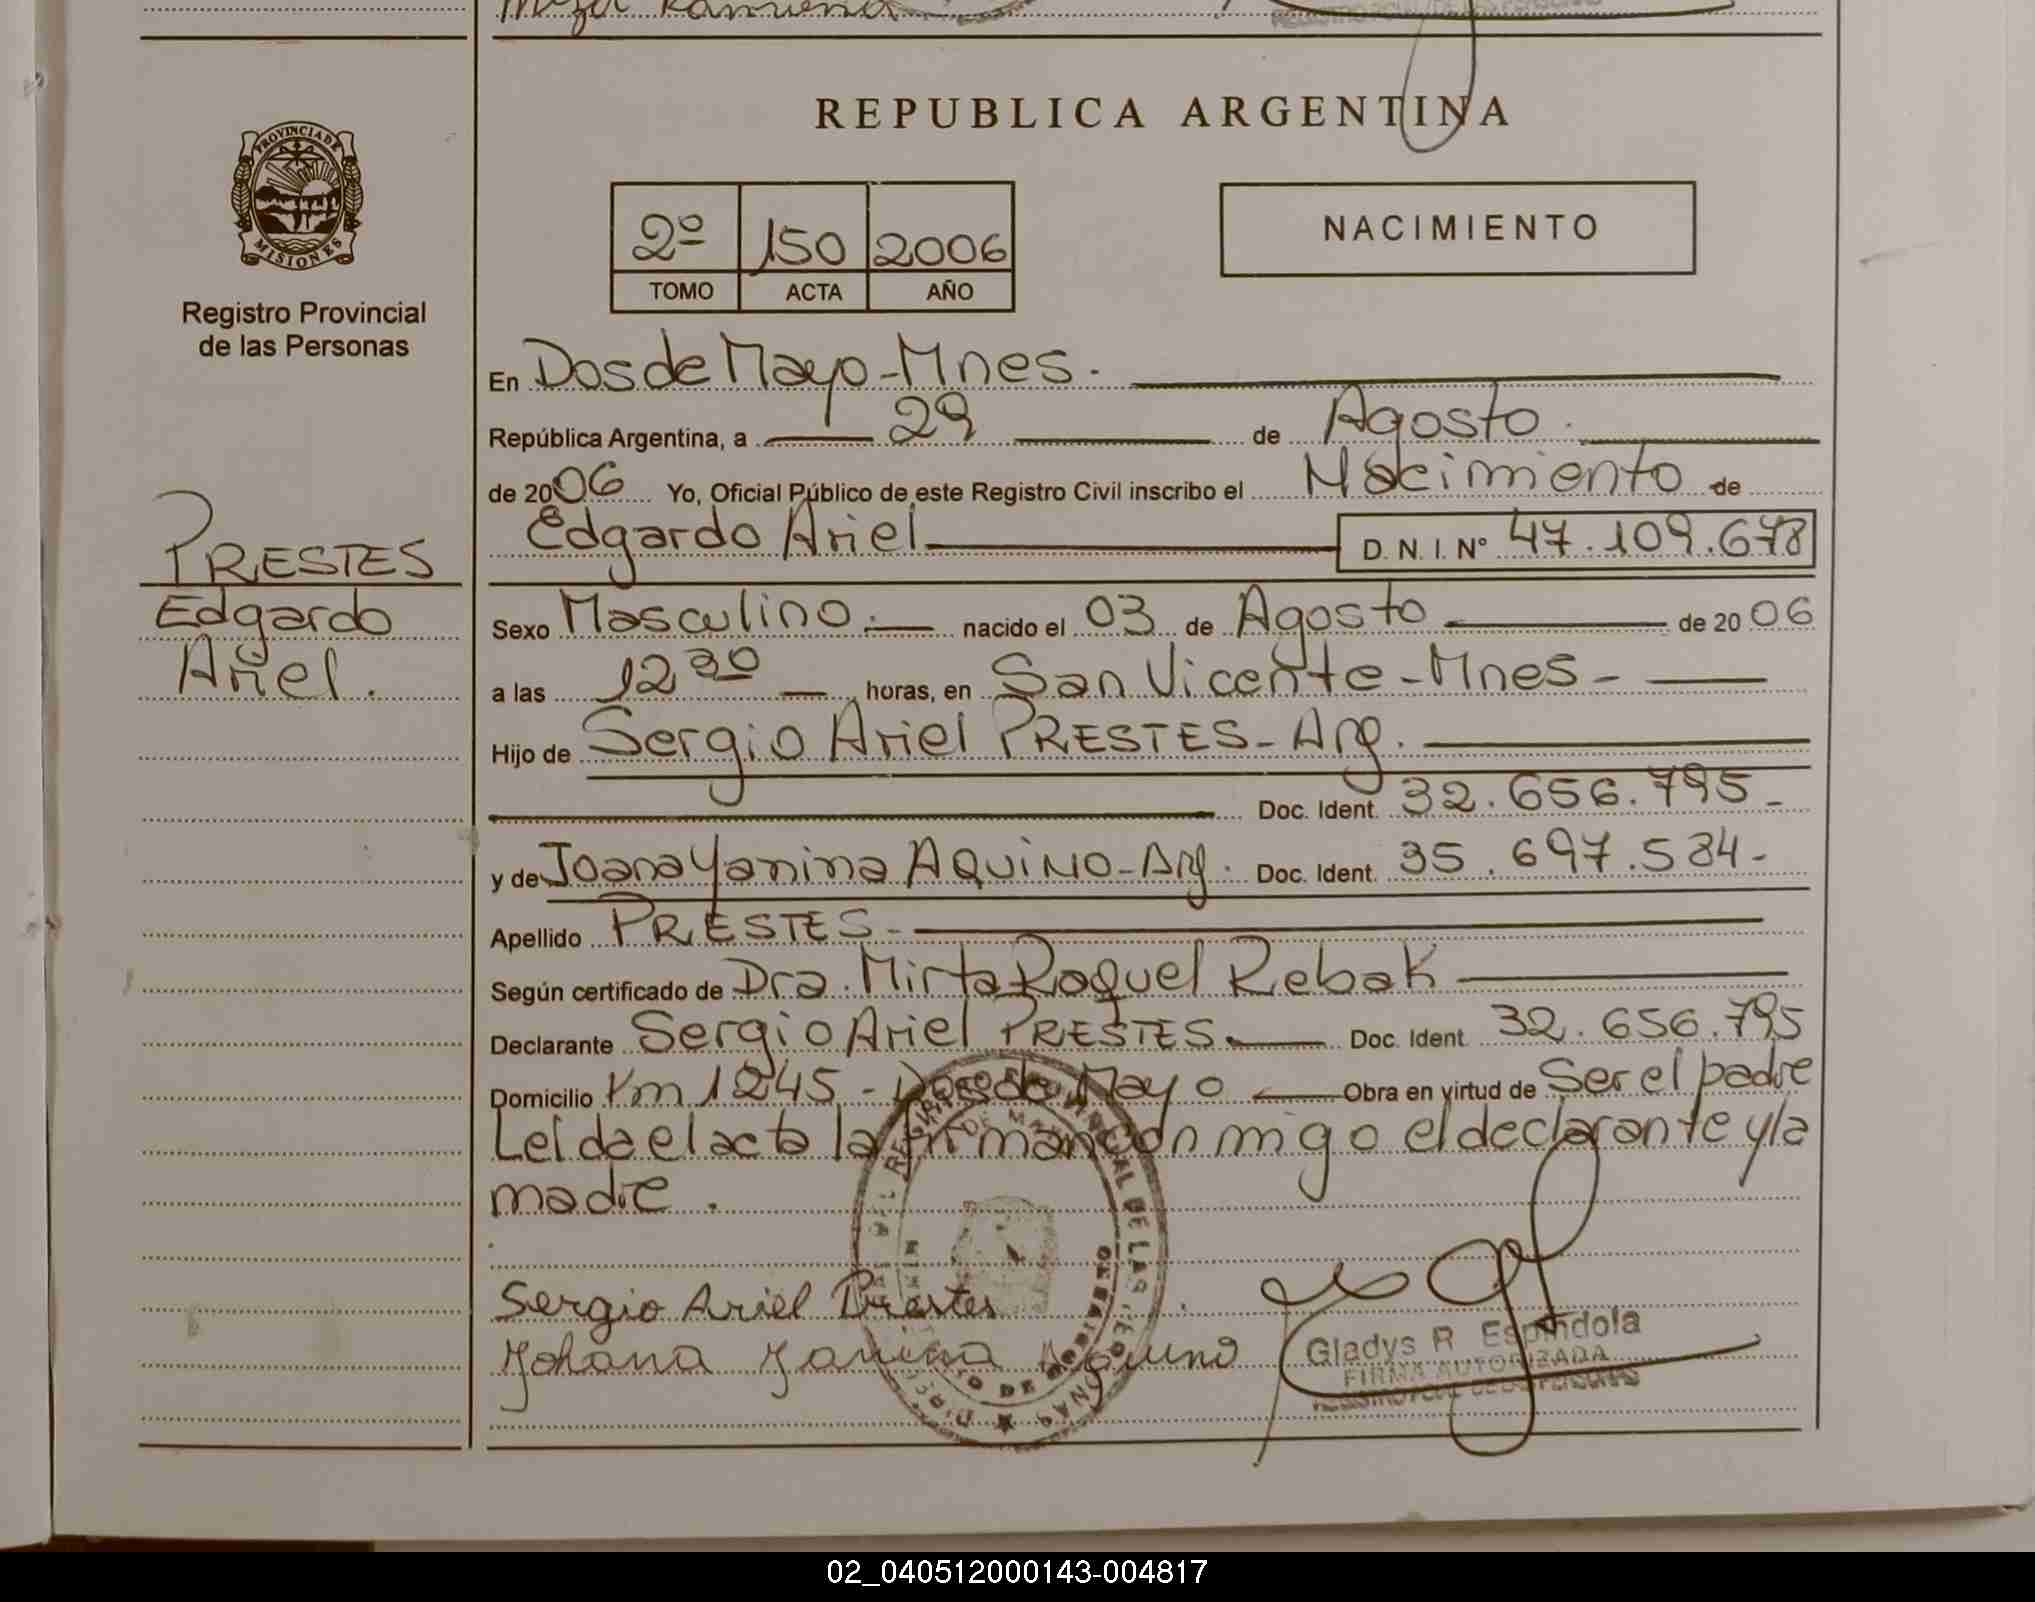 PROVINCIA DE
MISIONES
Registro Provincial
de las Personas
PRESTES
Edgardo
Ariel.
REPUBLICA ARGENTINA
2º 150 2006
TOMO ACTA AÑO
NACIMIENTO
En Dos de Mayo - Mnes.
República Argentina, a 29 de Agosto.
de 2006 Yo, Oficial Público de este Registro Civil inscribo el Nacimiento de
Edgardo Ariel D. N. I. Nº 47.109.678
Sexo Masculino. nacido el 03 de Agosto de 2006
a las 12 30 horas, en San Vicente - Mnes -
Hijo de Sergio Ariel PRESTES - Arg.
Doc. Ident. 32.656.795 -
y de Joana Yanina AQUINO - Arg. Doc. Ident. 35.697.584 -
Apellido PRESTES -
Según certificado de Dra. Mirta Raquel Rebak
Declarante Sergio Ariel PRESTES. Doc. Ident. 32.656.795
Domicilio Km 1245 - Dos de Mayo Obra en virtud de Ser el padre
Leída el acta la firman conmigo el declarante y la
madre.
Sergio Ariel Prestes
Johana Janina Aquino
Gladys R Espindola
FIRMA AUTORIZADA
02_040512000143-004817